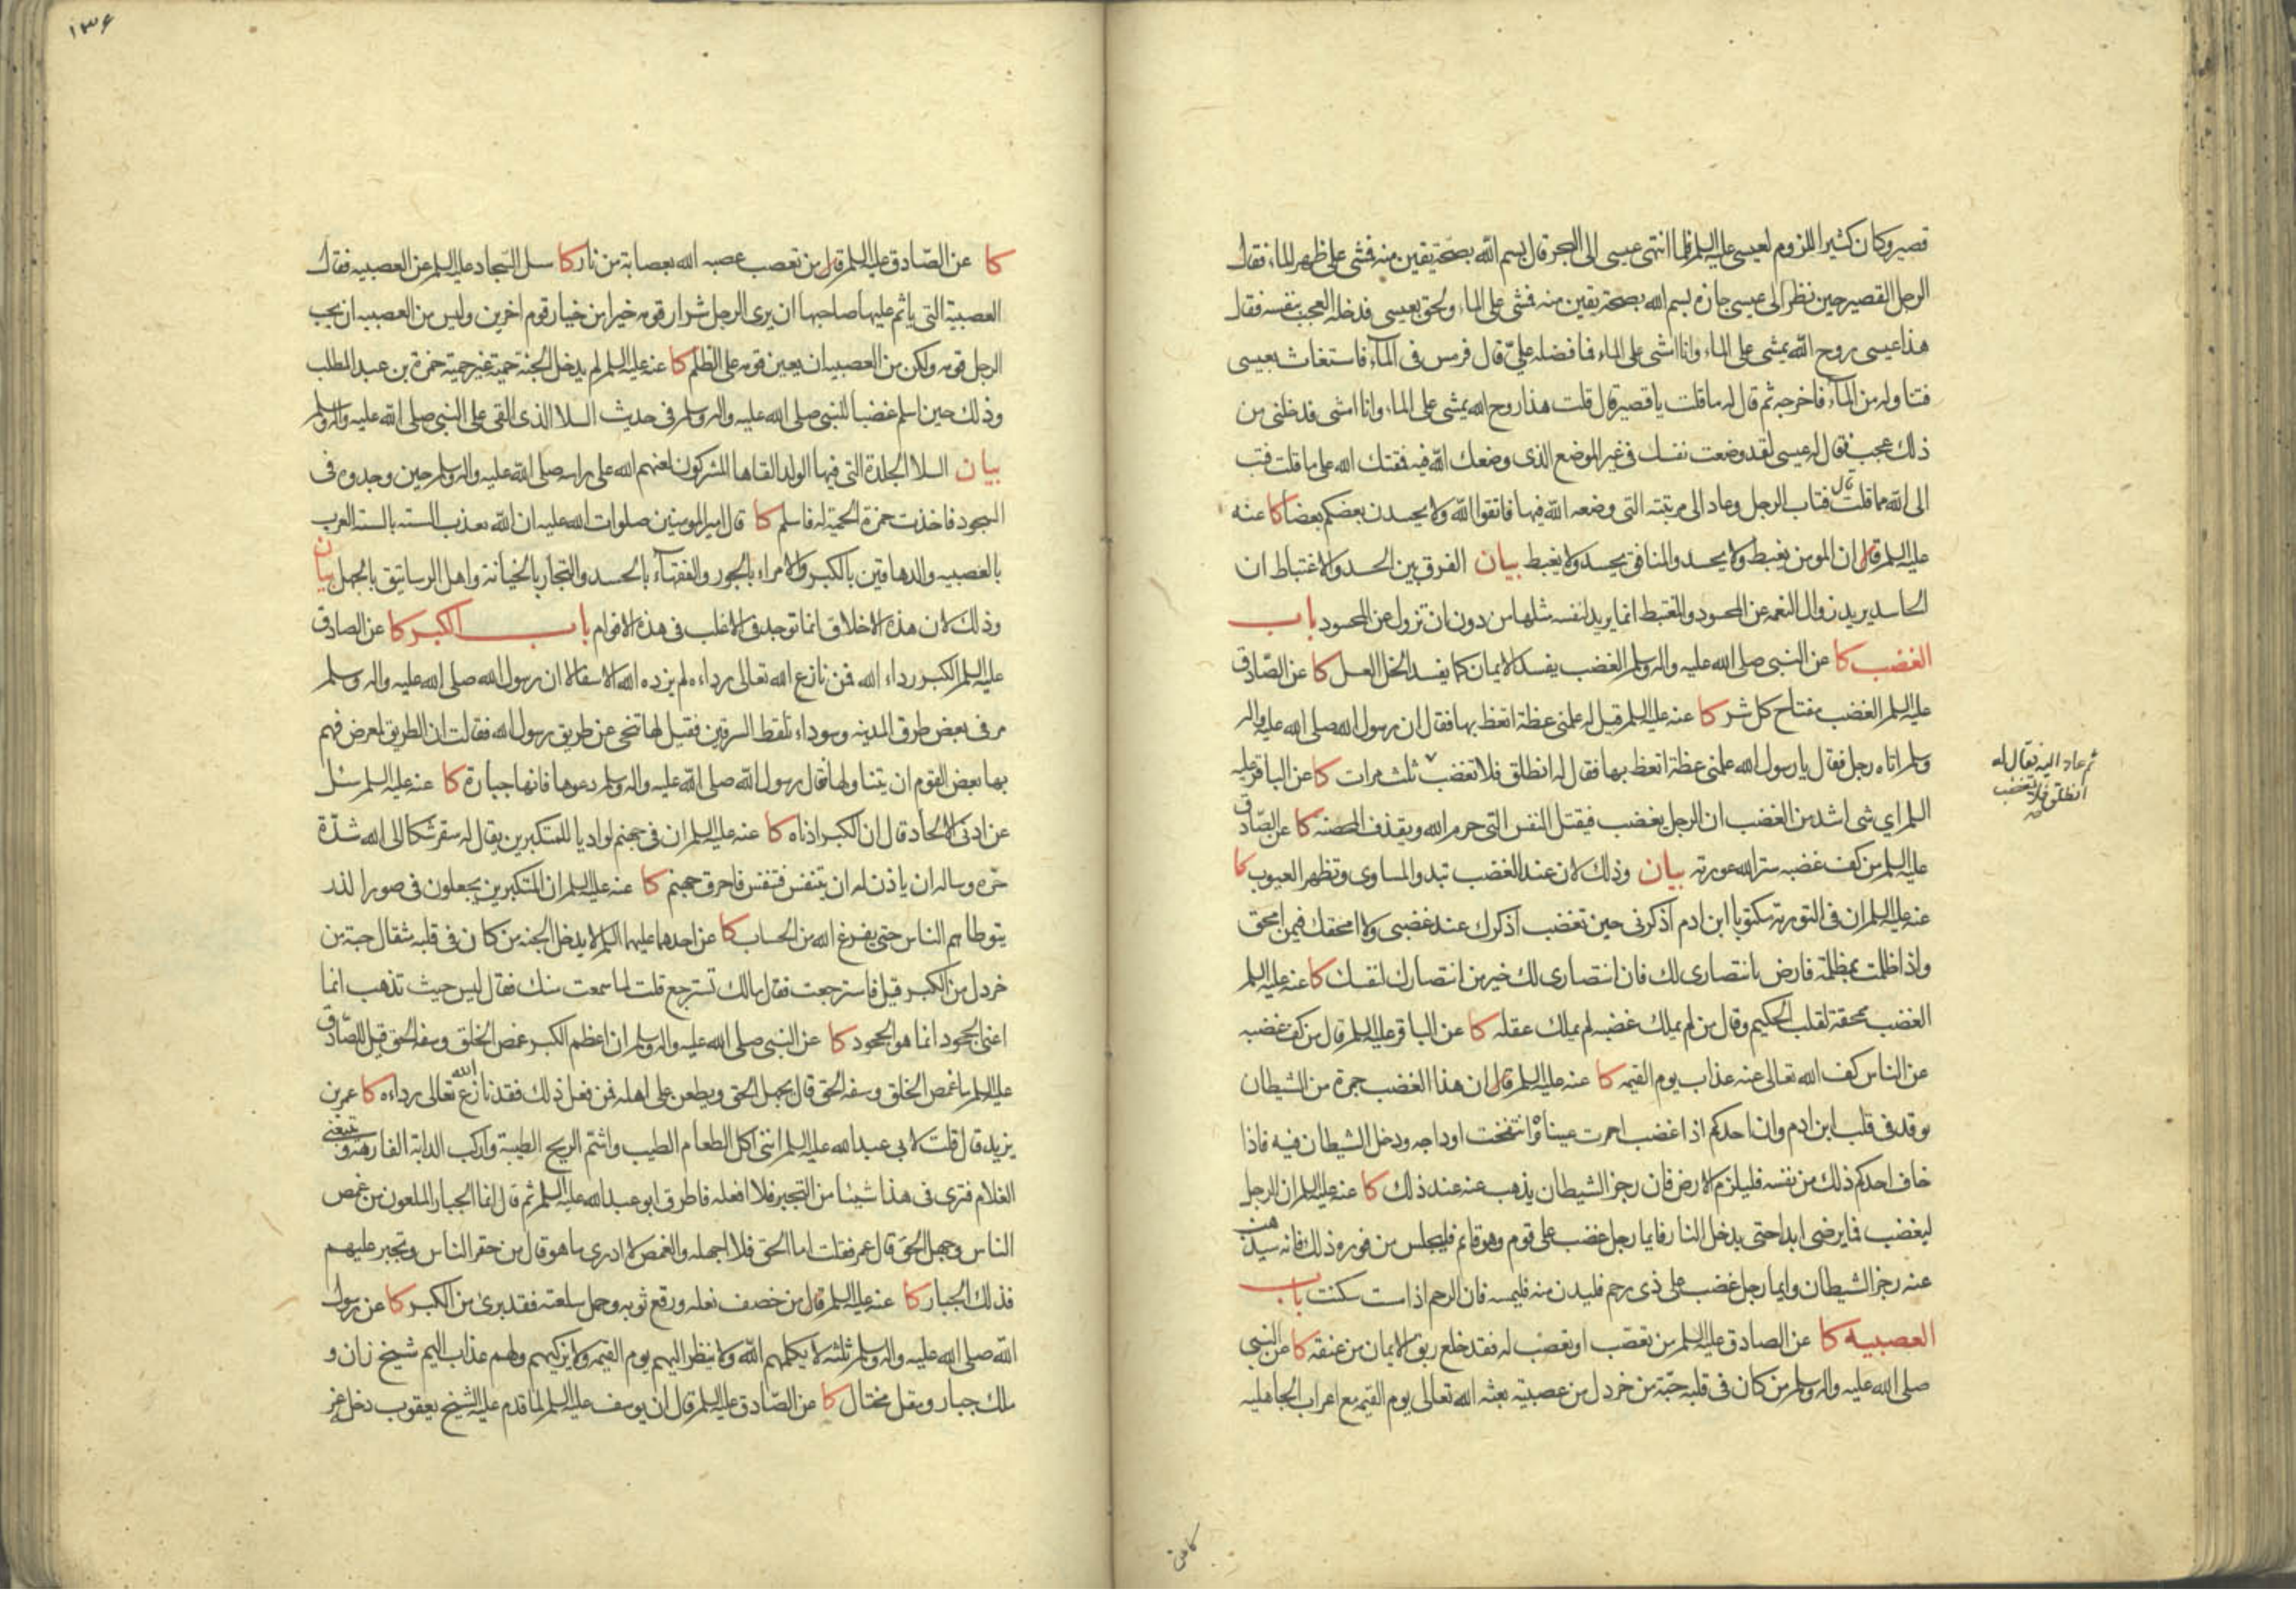 قصير وكان كثير اللزوم لعيسى عليه السلم فلما انتهى عيسى الى البحر قال بسم الله بصحة يقين منه فمشى على ظهر الماء فقال
الرجل القصير حين نظر الى عيسى جازه بسم الله بصحة يقين منه فمشى على الماء ولحق بعيسى فدخله العجب بنفسه فقال
هذا عيسى روح الله يمشى على الماء وانا امشى على الماء فما فضله علىّ قال فرمس فى الماء فاستغاث بعيسى
فتناوله من الماء فاخرجه ثم قال له ما قلت يا قصير قال قلت هذا روح الله يمشى على الماء وانا امشى فدخلنى من
ذلك عجب فقال له عيسى لقد وضعت نفسك فى غير الموضع الذى وضعك الله فيه فمقتك الله على ما قلت فتب
الى الله مما قلت قال فتاب الرجل وعاد الى مرتبته التى وضعه الله فيها فاتقوا الله ولا يحسدن بعضكم بعضا كا عنه
عليه السلم قال ان المومن يغبط ولا يحسد والمنافق يحسد ولا يغبط بيان الفرق بين الحسد والاغتباط ان
الحاسد يريد زوال النعمه عن المحسود والمغتبط انما يريد لنفسه مثلها من دون ان تزول عن المحسود باب
الغضب كا عن النبى صلى الله عليه واله وسلم الغضب يفسد الايمان كما يفسد الخل العسل كا عن الصّادق
عليه السلم الغضب مفتاح كل شر كا عنه عليه السلم قيل له علمنى عظة اتعظ بها فقال ان رسول الله صلى الله عليه واله
وسلم اتاه رجل فقال يا رسول الله علمنى عظة اتعظ بها فقال له انطلق فلا تغضب ثلث مرات كا عن الباقر عليه
السلم اي شى اشد من الغضب ان الرجل يغضب فيقتل النفس التى حرم الله ويقذف المحصنه كا عن الصّادق
عليه السلم من كف غضبه ستر الله عورته بيان وذلك لان عند الغضب تبدو المساوى وتظهر العيوب كا
عنه عليه السلم ان فى التورية مكتوبا ابن ادم اذكرنى حين تغضب اذكرك عند غضبى ولا امحقك فيمن امحق
واذا ظلمت بمظلمة فارض بانتصارى لك فان انتصارى لك خير من انتصارك لنفسك كا عنه عليه السلم
الغضب ممحقة لقلب الحكيم وقال من لم يملك غضبه لم يملك عقله كا عن الباقر عليه السلم قال من كف غضبه
عن الناس كف الله تعالى عنه عذاب يوم القيمه كا عنه عليه السلم قال ان هذا الغضب جمرة من الشيطان
توقد فى قلب ابن ادم وان احدكم اذا غضب احمرت عيناه وانتفخت اوداجه ودخل الشيطان فيه فاذا
خاف احدكم ذلك من نفسه فليلزم الارض فان رجز الشيطان يذهب عنه عند ذلك كا عنه عليه السلم ان الرجل
ليغضب فما يرضى ابدا حتى يدخل النار فايما رجل غضب على قوم وهو قائم فليجلس من فوره ذلك فانه سيذهب
عنه رجز الشيطان وايما رجل غضب على ذى رحم فليدن منه فليمسه فان الرحم اذا مست سكنت باب
العصبيه كا عن الصادق عليه السلم من تعصّب او تعصّب له فقد خلع ربق الايمان من عنقه كا عن النبى
صلى الله عليه واله وسلم من كان فى قلبه حبّة من خردل من عصبية بعثه الله تعالى يوم القيمه مع اعراب الجاهليه
ثم عاد اليه فقال له
انطلق فلا تغضب
١٣٦
كا عن الصّادق عليه السلم قال من تعصب عصبه الله بعصابة من نار كا سئل السّجاد عليه السلم عن العصبيه فقال
العصبية التى ياثم عليها صاحبها ان يرى الرجل شرار قومه خيرا من خيار قوم اخرين وليس من العصبيه ان يحب
الرجل قومه ولكن من العصبيه ان يعين قومه على الظلم كا عنه عليه السلم لم يدخل الجنة حمية غير حمية حمزة بن عبد المطلب
وذلك حين اسلم غضبا للنبى صلى الله عليه واله وسلم فى حديث السلا الذى القى على النبى صلى الله عليه واله وسلم
بيان السلا الجلدة التى فيها الولد القاها المشركون لعنهم الله على راسه صلى الله عليه واله وسلم حين وجدوه فى
السجود فاخذت حمزة الحمية له فاسلم كا قال امير المومنين صلوات الله عليه ان الله يعذب الستة بالستة العرب
بالعصبيه والدهاقين بالكبر والامراء بالجور والفقهاء بالحسد والتجار بالخيانة واهل الرساتيق بالجهل بيان
وذلك لان هذه الاخلاق انما توجد فى الاغلب فى هذه الاقوام باب الكبر كا عن الصادق
عليه السلم الكبر رداء الله فمن نازع الله تعالى رداءه لم يزده الله الا سفالا ان رسول الله صلى الله عليه واله وسلم
مر فى بعض طرق المدينه وسوداء تلقط السرقين فقيل لها تنحى عن طريق رسول الله فقالت ان الطريق لمعرض فهم
بها بعض القوم ان يتناولها فقال رسول الله صلى الله عليه واله وسلم دعوها فانها جبارة كا عنه عليه السلم سئل
عن ادنى الالحاد قال ان الكبر ادناه كا عنه عليه السلم ان فى جهنم لواديا للمتكبرين يقال له سقر شكا الى الله شدّة
حرّه وساله ان ياذن له ان يتنفس فتنفس فاحرق جهنم كا عنه عليه السلم ان المتكبرين يجعلون فى صور الذر
يتوطاهم الناس حتى يفرغ الله من الحساب كا عن احدهما عليهما السلم لا يدخل الجنه من كان فى قلبه مثقال حبة من
خردل من الكبر قيل فاسترجعت فقال مالك تسترجع قلت لما سمعت منك فقال ليس حيث تذهب انما
اعنى الجحود انما هو الجحود كا عن النبى صلى الله عليه واله وسلم ان اعظم الكبر غمص الخلق وسفه الحق قيل للصّادق
عليه السلم ما غمص الخلق وسفه الحق قال يجهل الحق ويطعن على اهله فمن فعل ذلك فقد نازع الله تعالى رداءه كا عمر بن
يزيد قال قلت لابى عبد الله عليه السلم اننى اكل الطعام الطيب واشتم الريح الطيبة واركب الدابة الفارهة ويتبعنى
الغلام فترى فى هذا شيئا من التجبر فلا افعله فاطرق ابو عبد الله عليه السلم ثم قال انما الجبار الملعون من غمص
الناس وجهل الحق قال عمر فقلت اما الحق فلا اجهله والغمص لا ادرى ما هو قال من حقر الناس وتجبر عليهم
فذلك الجبار كا عنه عليه السلم قال من خصف نعله ورقع ثوبه وحمل سلعته فقد برئ من الكبر كا عن رسول
الله صلى الله عليه واله وسلم ثلثه لا يكلمهم الله ولا ينظر اليهم يوم القيمه ولا يزكيهم ولهم عذاب اليم شيخ زان و
ملك جبار ومقل مختال كا عن الصّادق عليه السلم قال ان يوسف عليه السلم لما قدم عليه الشيخ يعقوب دخله عز
كا عن